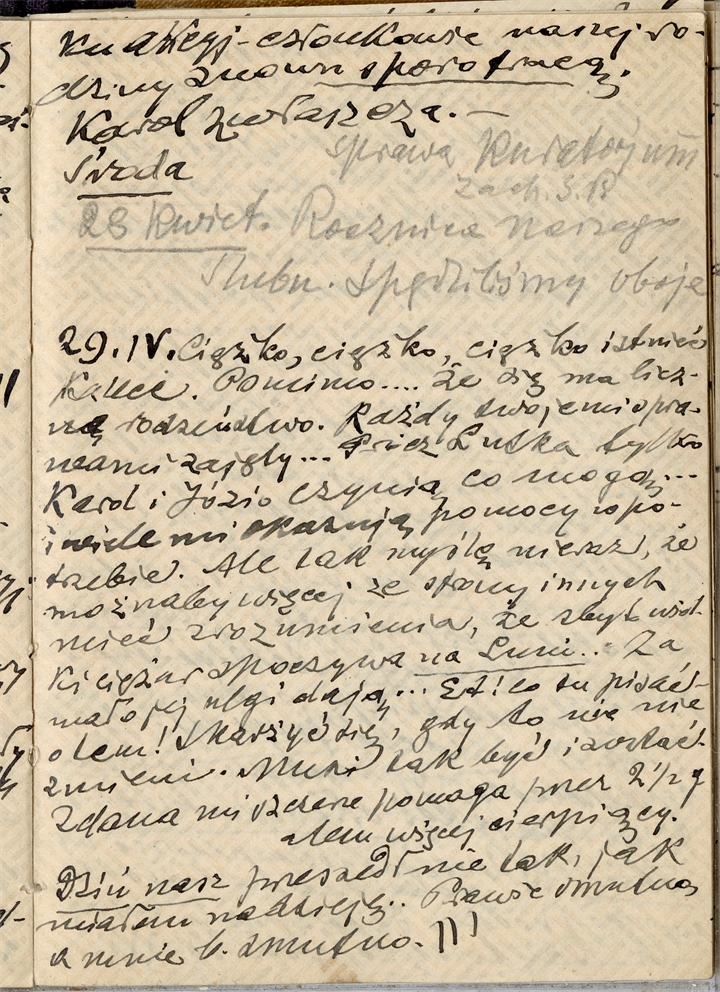 ku allegj - członkowie naszej ro-
dziny znowu sporo tracą,
Karol zwłaszcza. —
Środa
sprawa Kuratorjum
Zach. S. B
28 Kwiet. Rocznica naszego
Ślubu. Spędziliśmy oboje
29.IV. Ciężko, ciężko, ciężko istnieć
kalece. Pomimo.... że się ma licz-
ną rodzeństwo. Każdy swojemi spra-
wami zajęty... Prócz Lutka tylko
Karol i Józio czynią co mogą...
i wiele mi okazują pomocy w po-
trzebie. Ale tak myślę nieraz, że
możnaby więcej ze strony innych
mieć zrozumienia, że zbyt wiel-
ki ciężar spoczywa na Luni... Za
mało jej ulgi dają... Eh! co tu pisać
o tem! Skarżyć się, gdy to nic nie
zmieni. Musi tak być i zostać.
Zdana mi szczerze pomaga przez 2½ g
atem więcej cierpiący.
Dziś nasz przeszedł nie tak, jak
miałem nadzieję.. Prawie smutno,
a mnie b. smutno. )))